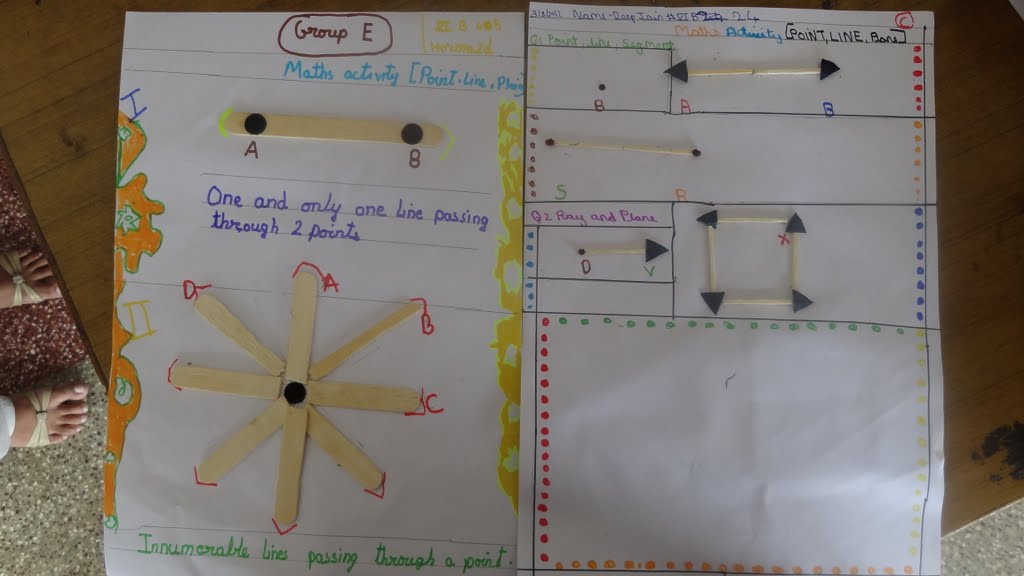 Group E
VI B
Maths activity [Point, Line, Plain
I
A
B
One and only one line passing
through 2 points
II
D
A
B
C
Innumerable lines passing through a point.
Name - Deep Jain VI B 24
C
Maths Activity [POINT, LINE, Bone]
Q1 Point, Line, Segment
B
A
B
S
R
Q2 Ray and Plane
D
V
X